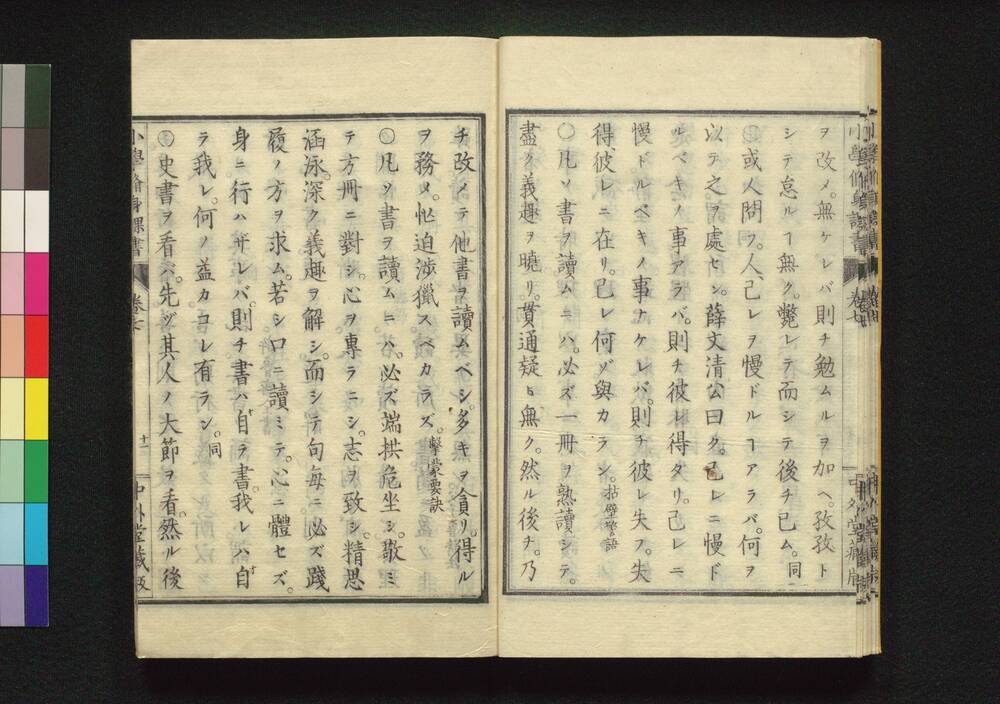 ヲ改メ。無ケレバ則チ勉ムルヲ加ヘ。孜孜ト
シテ怠ルヿ無ク。斃レテ而シテ後チ已ム。同
或人問フ。人、己レヲ慢ドルヿアラバ。何ヲ
以テ之ヲ處セン。薛文清公曰ク。己レニ慢ド
ルベキノ事アラバ。則チ彼レ得タリ。己レニ
慢ドルベキノ事ナケレバ。則チ彼レ失フ。失
得、彼レニ在リ。己レ何ゾ與カラン。拈屏警語
〇凡ソ書ヲ讀ムニハ。必ズ一冊ヲ熟讀シテ。
盡ク義趣ヲ曉リ。貫通疑ヒ無ク。然ル後チ。乃
チ改メテ他書ヲ讀ムベシ。多キヲ貪リ。得ル
ヲ務メ。忙迫涉獵スベカラズ。擊蒙要訣
〇凡ソ書ヲ讀ムニハ。必ズ端拱危坐シ。敬ミ
テ方冊ニ對シ。心ヲ專ラニシ。志ヲ致シ。精思
涵泳。深ク義趣ヲ解シ。而シテ句每ニ必ズ踐
履ノ方ヲ求ム。若シ口ニ讀ミテ。心ニ體セズ。
身ニ行ハザレバ。則チ書ハ自ラ書。我レハ自
ラ我レ。何ノ益カコレ有ラン。同
〇史書ヲ看バ。先ヅ其人ノ大節ヲ看。然ル後
小學脩身課書 卷七 十一 中外堂藏板